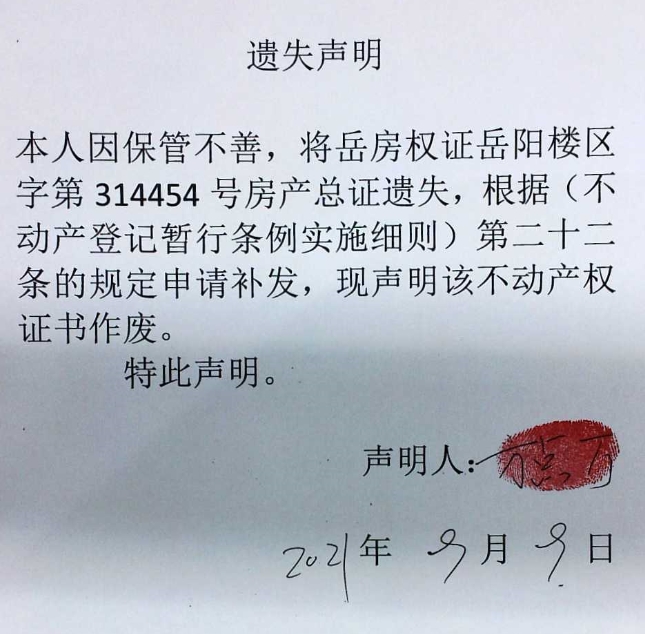 遗失声明
本人因保管不善，将岳房权证岳阳楼区
字第 314454 号房产总证遗失，根据（不
动产登记暂行条例实施细则）第二十二
条的规定申请补发，现声明该不动产权
证书作废。
特此声明。
声明人：
2021年 9月9日